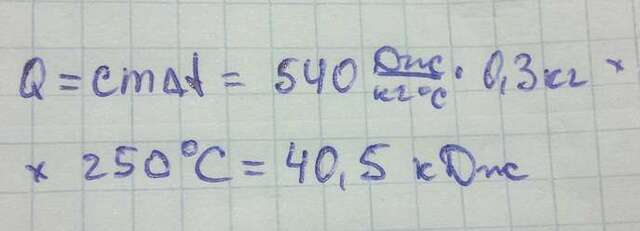 Q = cmΔt = 540 Дж/кг°C · 0,3 кг ×
× 250°C = 40,5 кДж